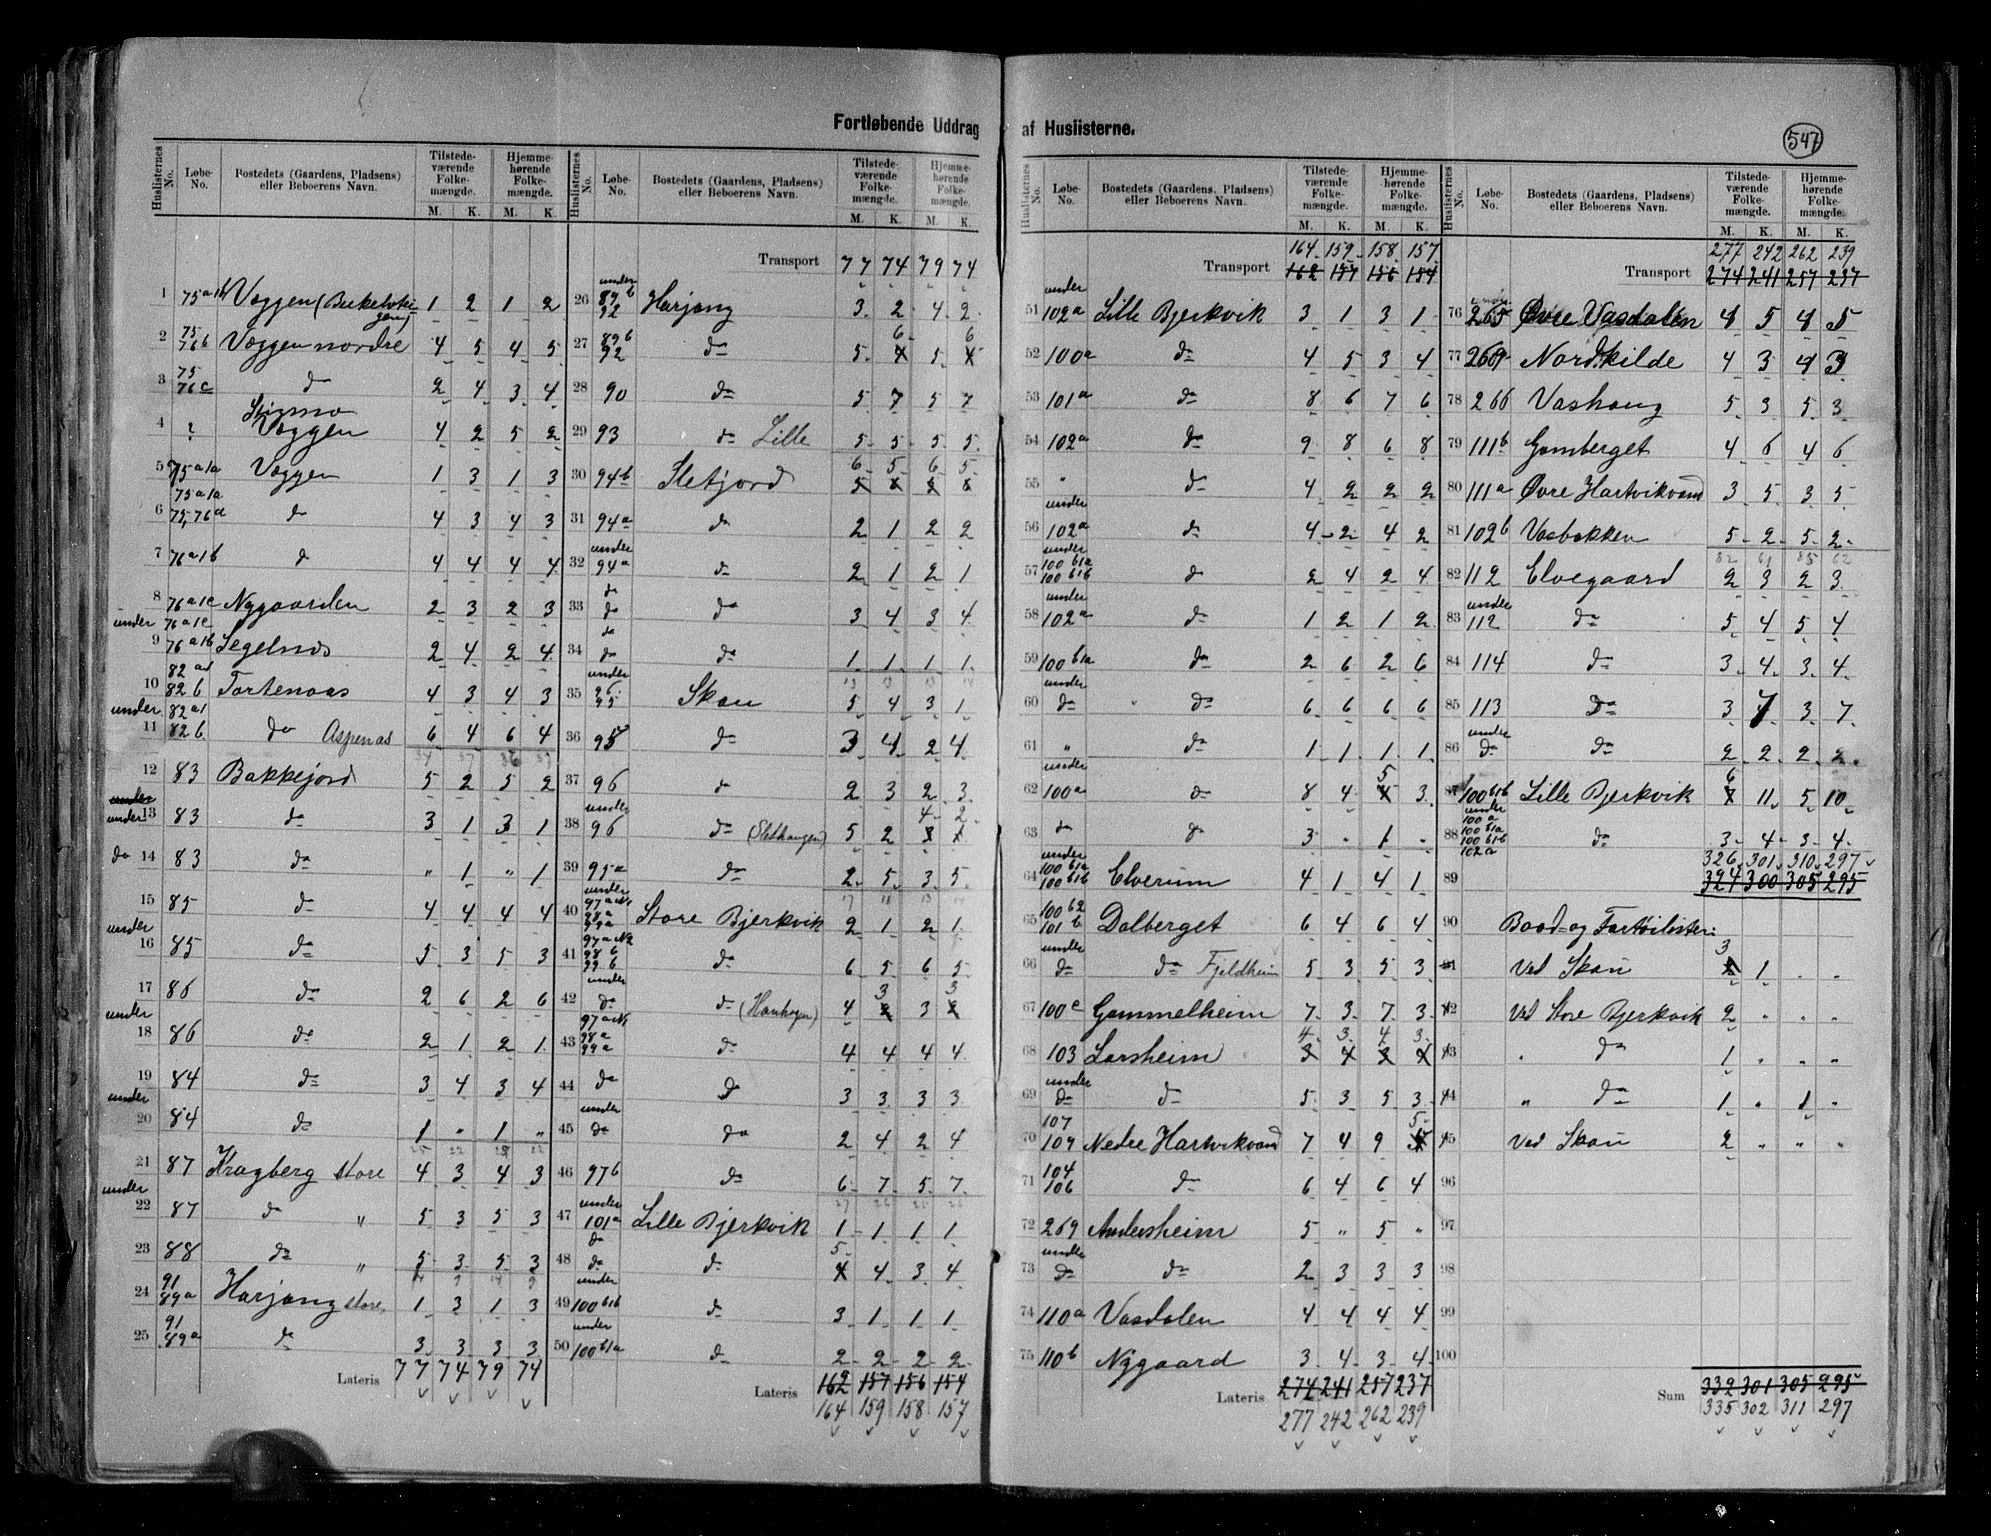 Fortløbende Uddrag af Huslisterne.
547
Huslisternes No. | Løbe-No. | Bostedets (Gaardens, Pladsens) eller Beboerens Navn. | Tilstede-værende Folke-mængde. M. K. | Hjemme-hørende Folke-mængde. M. K.
1 75a1b Voggen 1 2 1 2
2 75 76b Voggen nordre 4 5 4 5
3 75 76c d 2 4 3 4
4 ? Voggen 4 2 5 2
5 75a1a Voggen 1 3 1 3
6 75a1a 75,76d d 4 3 4 3
7 76a1b d 4 4 4 4
8 76a1c Nygaarden 2 3 2 3
9 under 76a1c 76a1b Segelnes 2 4 2 4
10 82a1 82b Tortenaas 4 3 4 3
11 under 82a1 82b do Aspenas 6 4 6 4
12 83 Bakkejord 5 2 5 2
13 under 83 do 3 1 3 1
14 do 83 do " 1 " 1
15 85 do 4 4 4 4
16 under 85 do 5 3 5 3
17 86 do 2 6 2 6
18 under 86 do 2 1 2 1
19 84 do 3 4 3 4
20 under 84 do 1 " 1 "
21 87 Kragberg store 4 3 4 3
22 under 87 do " 5 3 5 3
23 88 do " 5 3 5 3
24 91 89a Harjang store 1 3 1 3
25 91 89a do 3 3 3 3
Lateris 77 74 79 74
Transport 77 74 79 74
26 under 89b 92 Harjang 3 2 4 2
27 89b 92 do 5 6 5 6
28 90 do 5 7 5 7
29 93 do Lille 5 5 5 5
30 94b Sletjord 6 5 6 5
31 94a do 2 1 2 2
32 under 94a do 2 1 2 1
33 do do do 3 4 3 4
34 do do do 1 1 1 1
35 under 96 95 Skou 5 4 3 1
36 95 do 3 4 2 4
37 96 do 2 3 2 3
38 under 96 do (Slethaugen) 5 2 4 2
39 95a do 2 5 3 5
40 under 97a N1 98a 99a Store Bjerkvik 2 1 2 1
41 97a N2 98b 99b do 6 5 6 5
42 under do do 4 3 3 3
43 97a N1 98a 99a do 4 4 4 4
44 do do 3 3 3 3
45 under do do 2 4 2 4
46 97b do 6 7 5 7
47 under 101a Lille Bjerkvik 1 1 1 1
48 do do do 5 4 3 4
49 under 100b1b do 3 1 1 1
50 under 100b1a do 2 2 2 2
Lateris 162 157 156 154
164 159 158 157
164 159 158 157
Transport 162 157 156 154
51 under 102a Lille Bjerkvik 3 1 3 1
52 100a do 4 5 3 4
53 101a do 8 6 7 6
54 102a do 9 8 6 8
55 " do 4 2 2 2
56 under 102a do 4 2 4 2
57 under 100b1a 100b1b do 2 4 2 4
58 under 102a do 1 2 1 2
59 100b1a do 2 6 2 6
60 under do do 6 6 6 6
61 " do 1 1 1 1
62 under 100a do 8 4 5 3
63 do do 3 " 1 "
64 under 100b1a 100b1b Elverum 4 1 4 1
65 100b2 101b Dalberget 6 4 6 4
66 under do do Fjeldheim 5 3 5 3
67 100c Gammelheim 7 3 7 3
68 103 Larsheim 4 3 4 3
69 under do do 5 3 5 3
70 107 109 Nedre Hartvikvand 7 4 9 5
71 104 106 do 6 4 6 4
72 269 Andersheim 5 " 5 "
73 under do do 2 3 3 3
74 110a Vasdalen 4 4 4 4
75 110b Nygaard 3 4 3 4
Lateris 274 241 257 237
277 242 262 239
277 242 262 239
Transport 274 241 257 237
76 265 Øvre Vasdalen 4 5 4 5
77 269 Nordkilde 4 3 4 3
78 266 Vashaug 5 3 5 3
79 111b Gamberget 4 6 4 6
80 111a Øvre Hartvikvand 3 5 3 5
81 102b Vasbakken 5 2 5 2
82 112 Elvegaard 2 3 2 3
83 under 112 do 5 4 5 4
84 114 do 3 4 3 4
85 113 do 3 7 3 7
86 under do do 2 2 2 2
87 100b1b Lille Bjerkvik 6 11 5 10
88 under 100a 100b1a 100b1b 102a do 3 4 3 4
326 301 310 297
89 324 300 305 295
90 Baad- og Fartøilister:
91 Ved Skou 3 1 " "
92 Ved Store Bjerkvik 2 " " "
93 " do 1 " " "
94 " do 1 " 1 "
95 Ved Skou 2 " " "
96
97
98
99
100
Sum 332 301 305 295
335 302 311 297